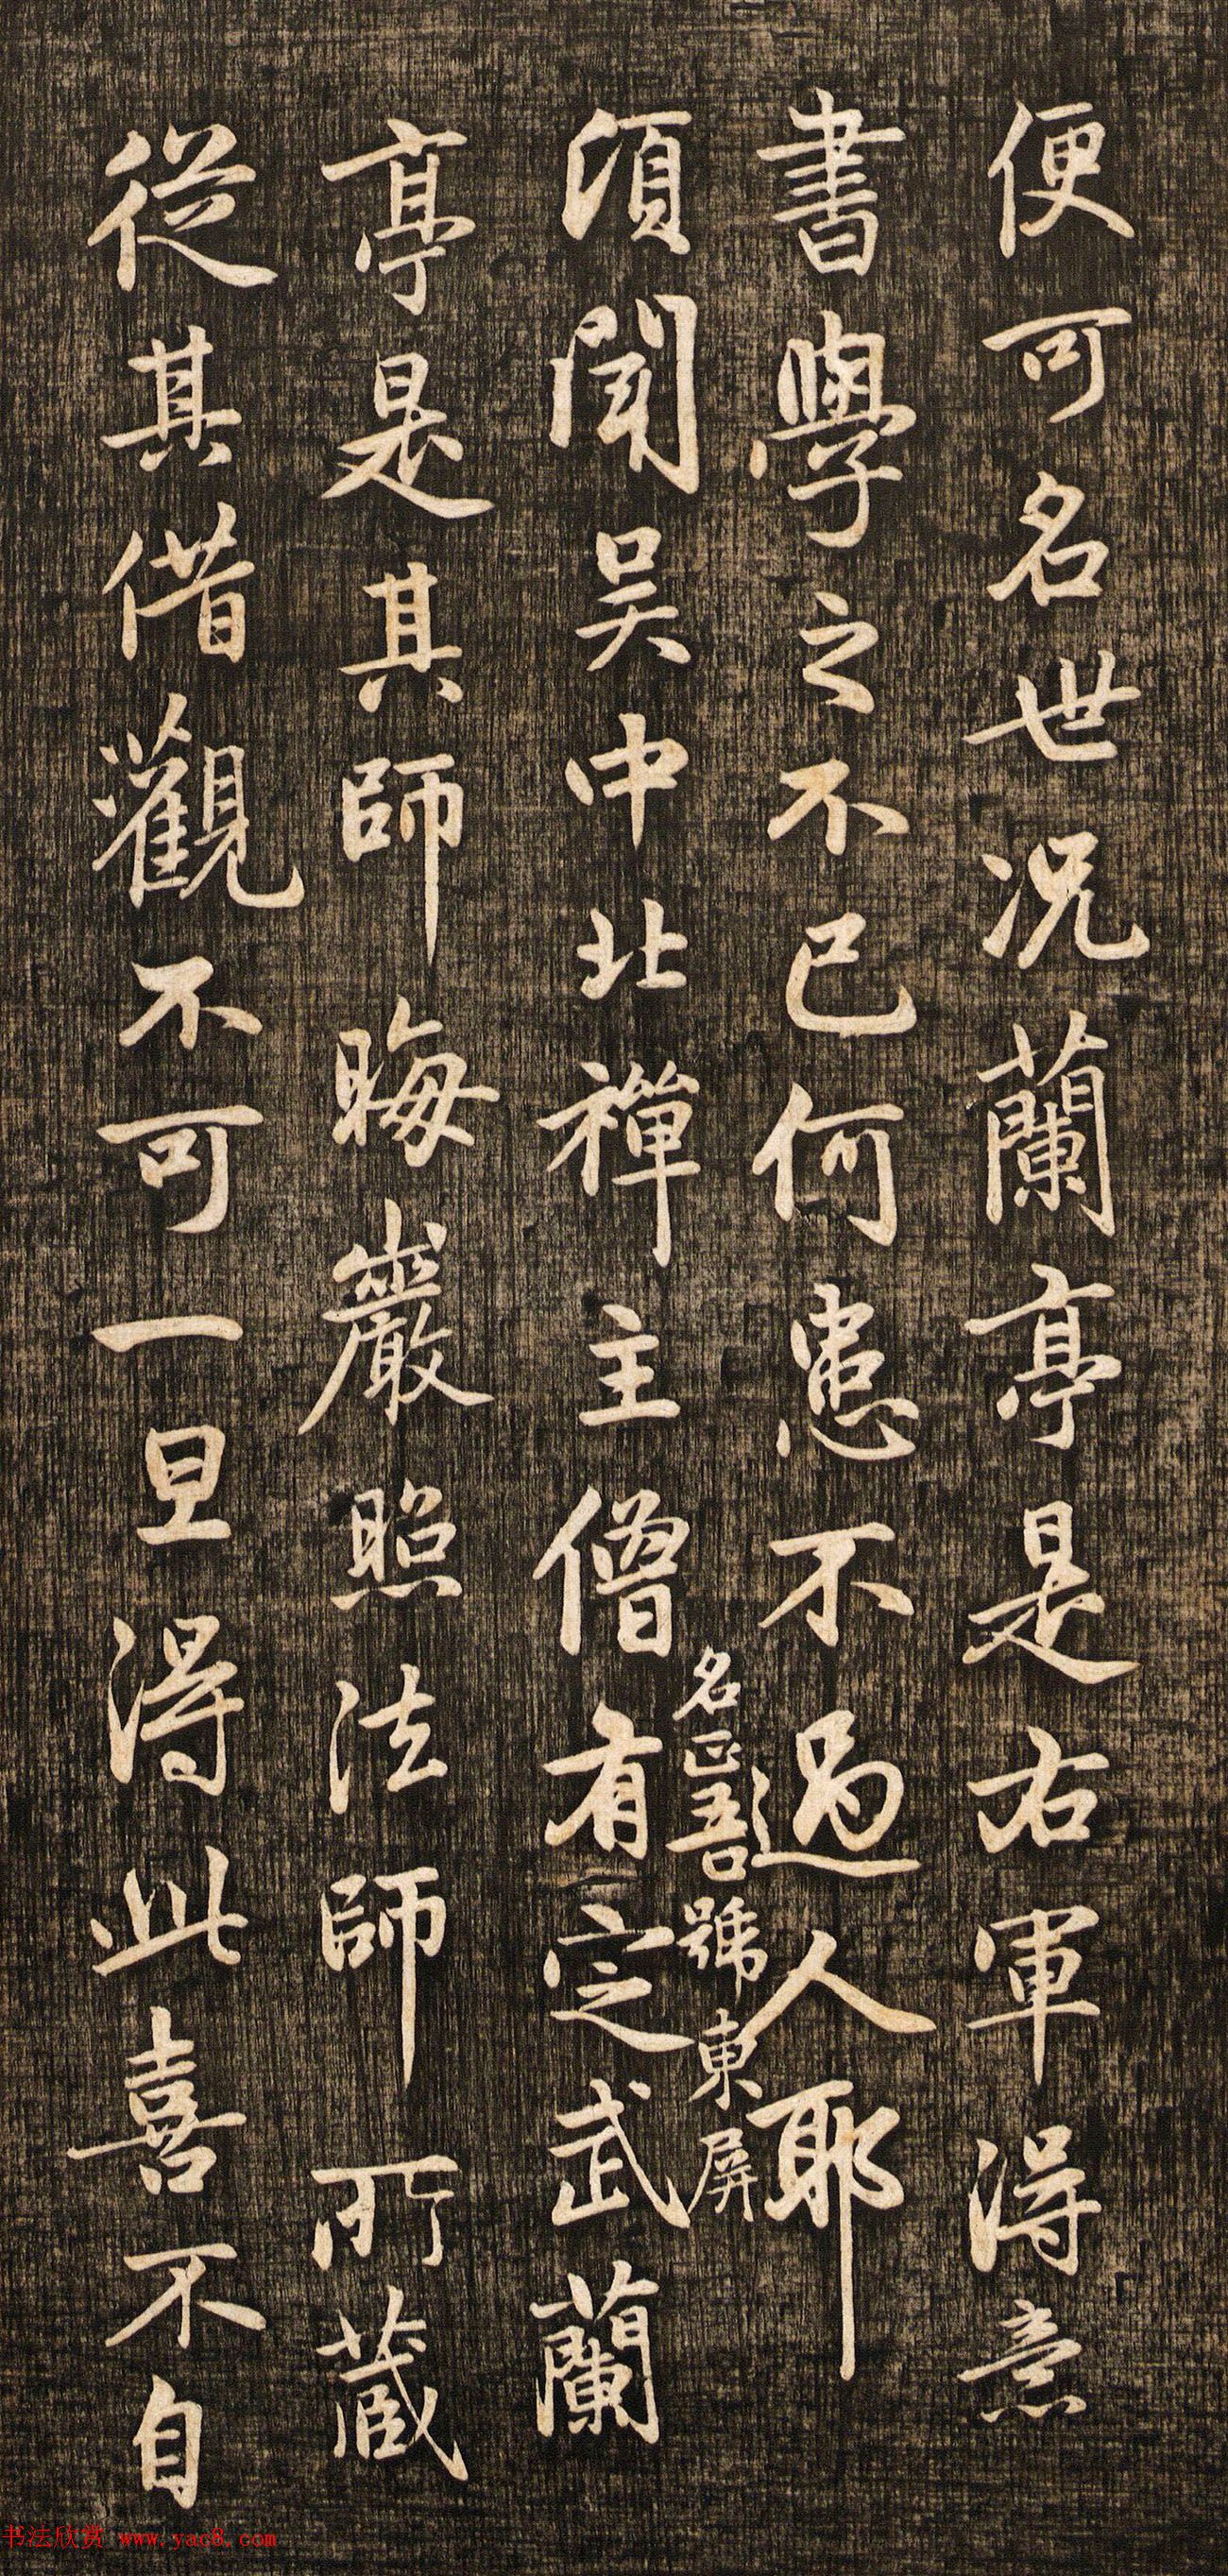 便可名世况蘭亭是右軍得意
書學之不已何患不過人耶
頃聞吳中北禪主僧
名正吾號東屏
有定武蘭
亭是其師晦巖照法師所藏
從其借觀不可一旦得此喜不自
书法欣赏 www.yac8.com